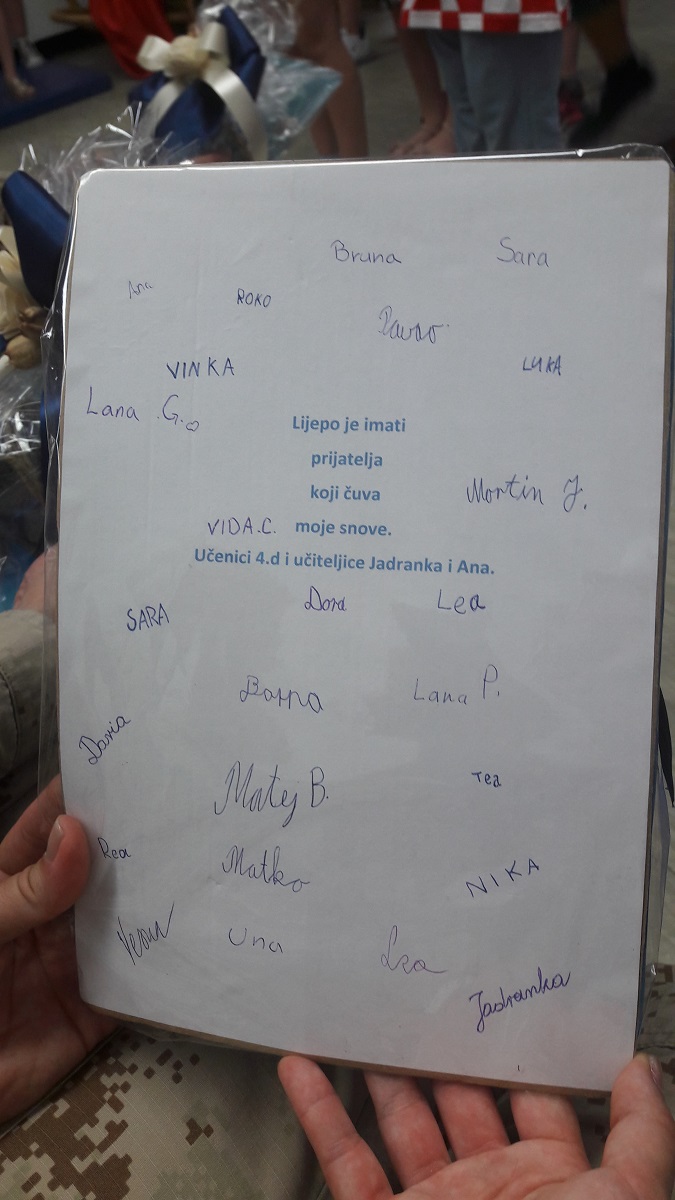 Bruna
Sara
Ana
ROKO
Pavao
VINKA
LUKA
Lana G.
Lijepo je imati
prijatelja
koji čuva
Martin J.
VIDA.C.
moje snove.
Učenici 4.d i učiteljice Jadranka i Ana.
Dora
Lea
SARA
Borna
Lana P.
Daria
Matej B.
Tea
Rea
Matko
NIKA
Una
Jadranka